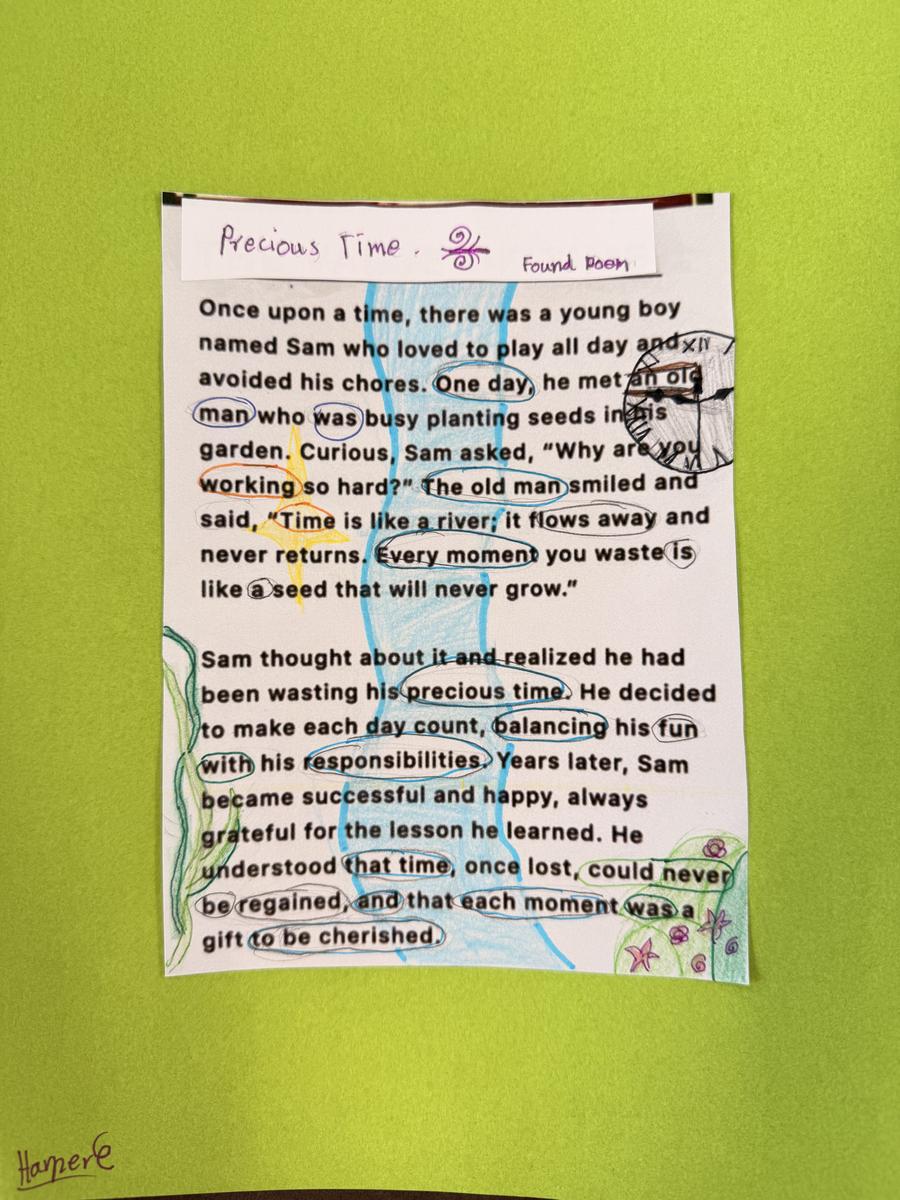 Precious Time.
Found Poem
Once upon a time, there was a young boy
named Sam who loved to play all day and
avoided his chores. One day, he met an old
man who was busy planting seeds in his
garden. Curious, Sam asked, “Why are you
working so hard?” The old man smiled and
said, “Time is like a river; it flows away and
never returns. Every moment you waste is
like a seed that will never grow.”
Sam thought about it and realized he had
been wasting his precious time. He decided
to make each day count, balancing his fun
with his responsibilities. Years later, Sam
became successful and happy, always
grateful for the lesson he learned. He
understood that time, once lost, could never
be regained, and that each moment was a
gift to be cherished.